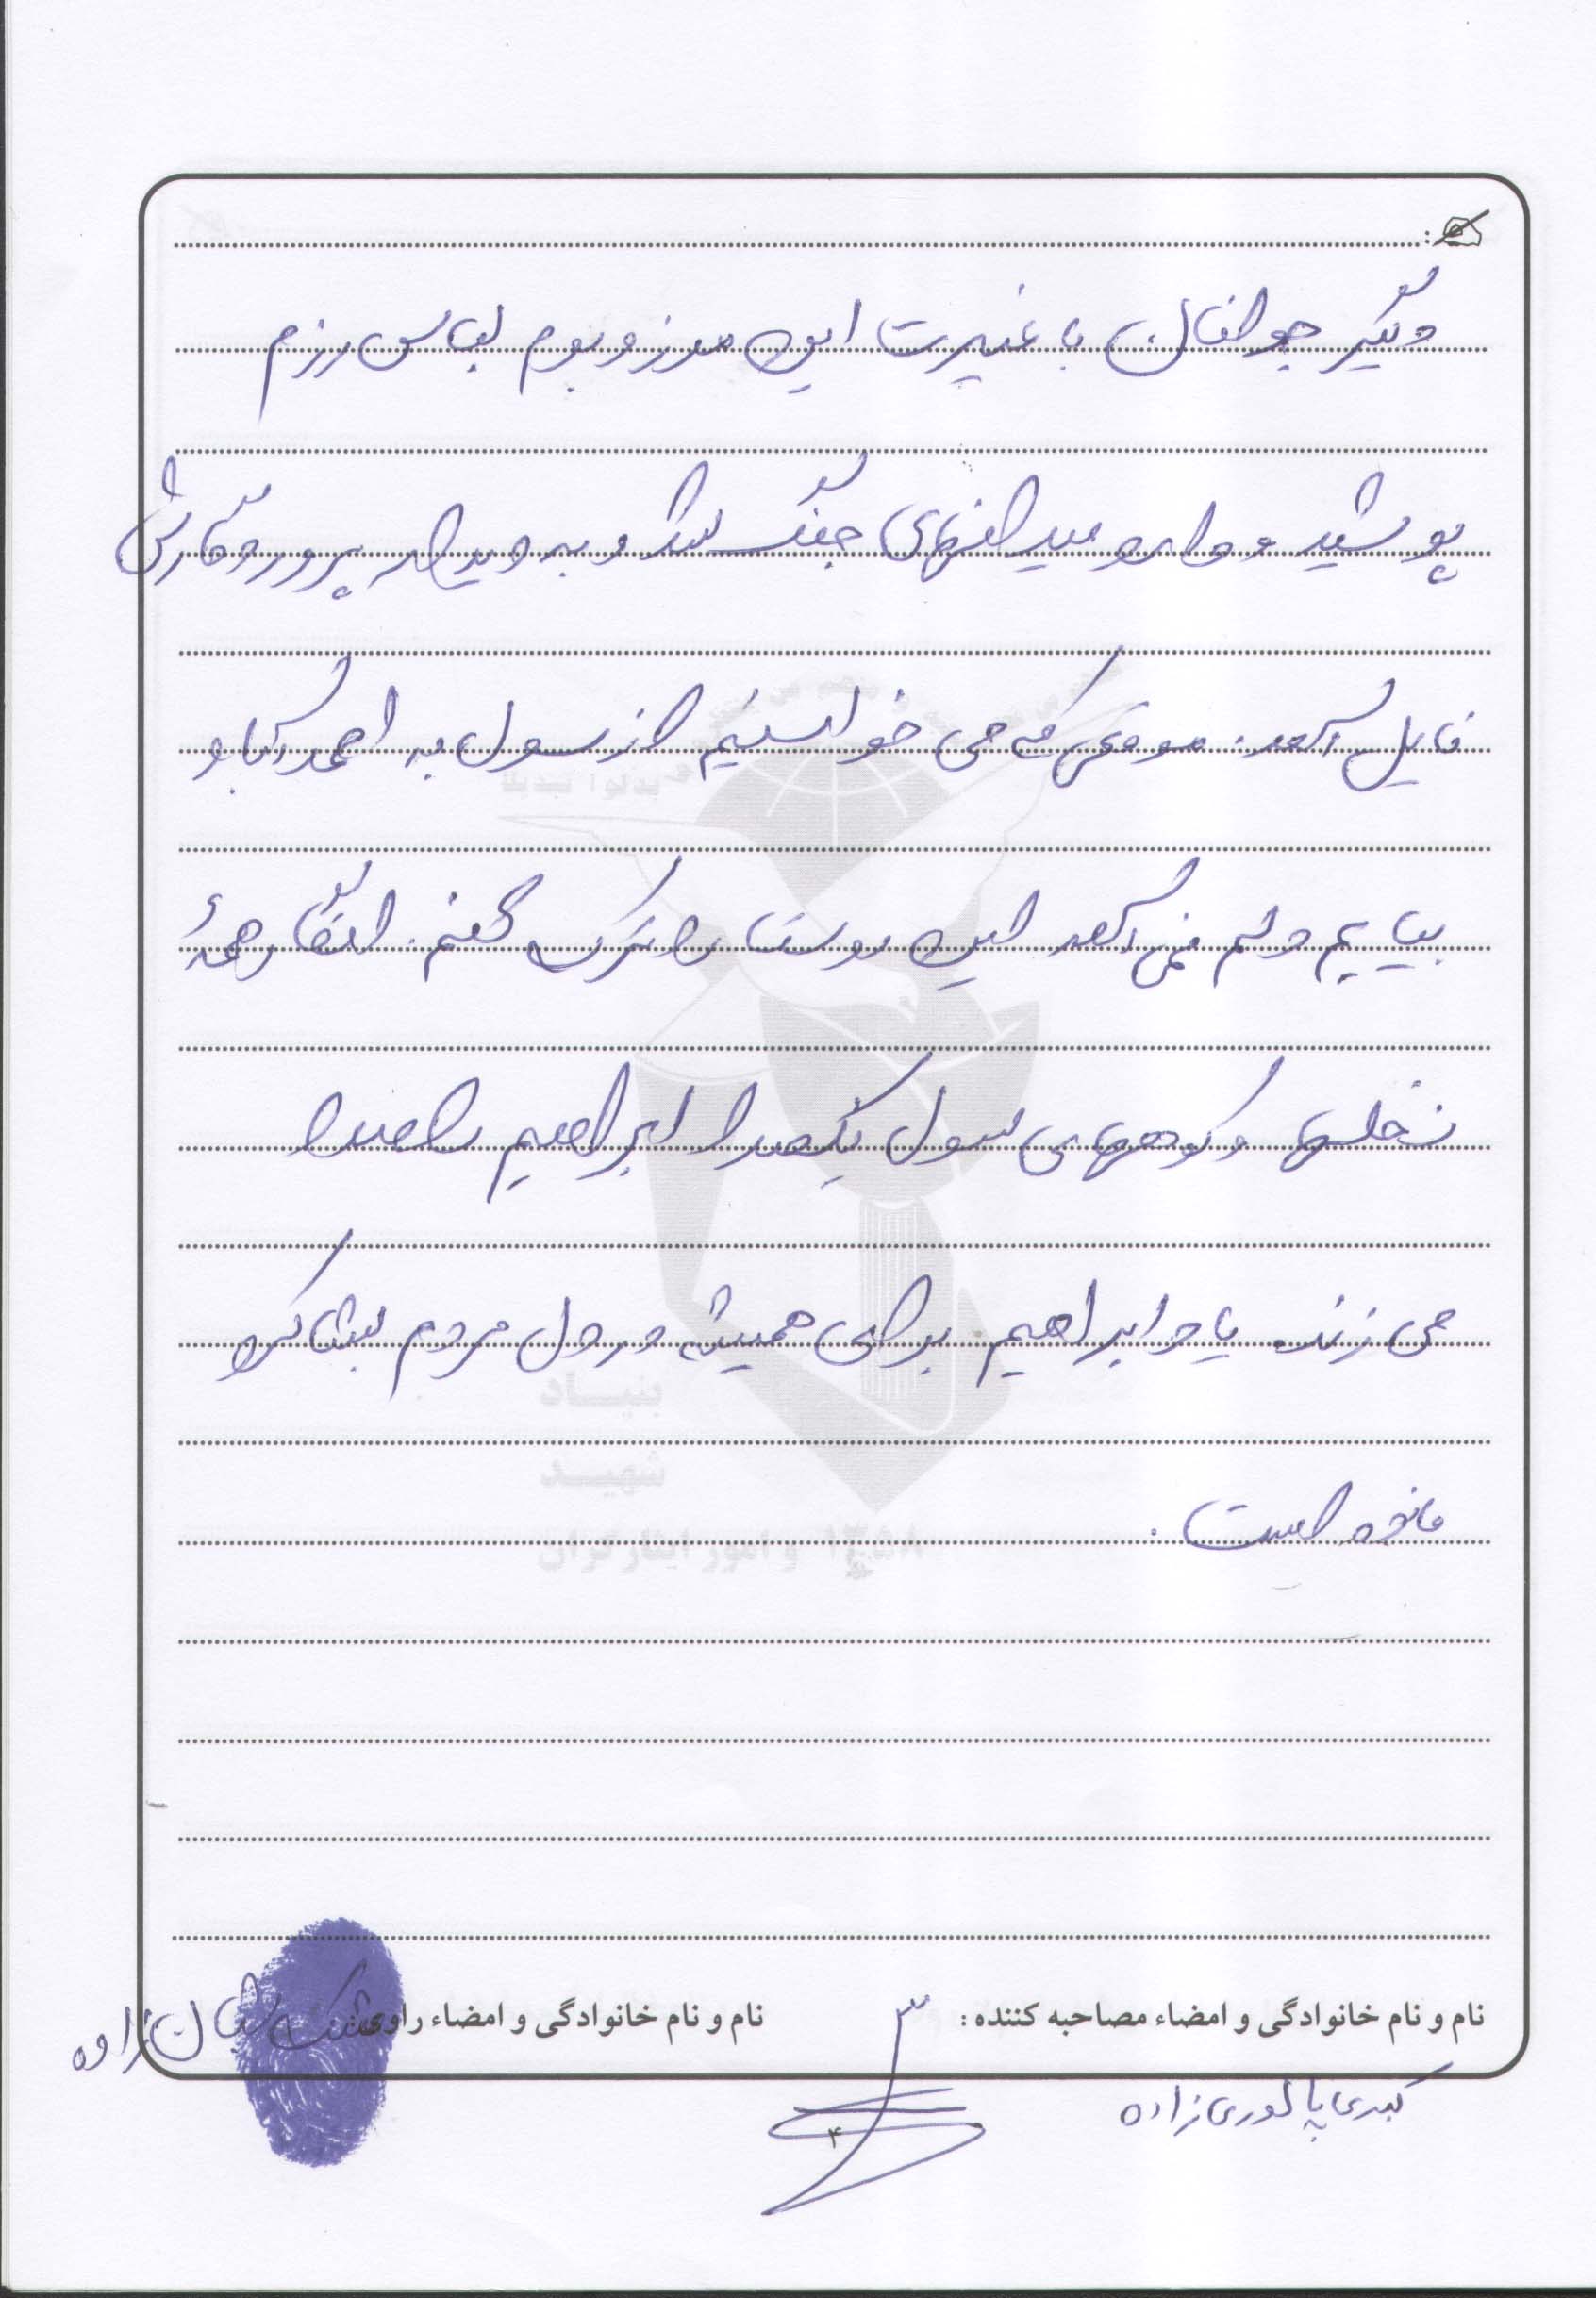 دیگر جوانان با غیرت این مرز و بوم لباس رزم
پوشید و وارد میدانهای جنگ شد و به دیدار پروردگارش
نایل آمد. موقعی که می خواستیم از رسول به احمدآباد
بیاییم دلم نمی آمد این روستا را ترک کنم. انگار همهٔ
نخلها و کوههای رسول یکصدا ابراهیم را صدا
می زند. یاد ابراهیم برای همیشه در دل مردم بشاگرد
مانده است.
بنیاد
شهید
و امور ایثارگران ۱۳۵۸
نام و نام خانوادگی و امضاء مصاحبه کننده :
نام و نام خانوادگی و امضاء راوی:
زاده
کبری زاده
۴